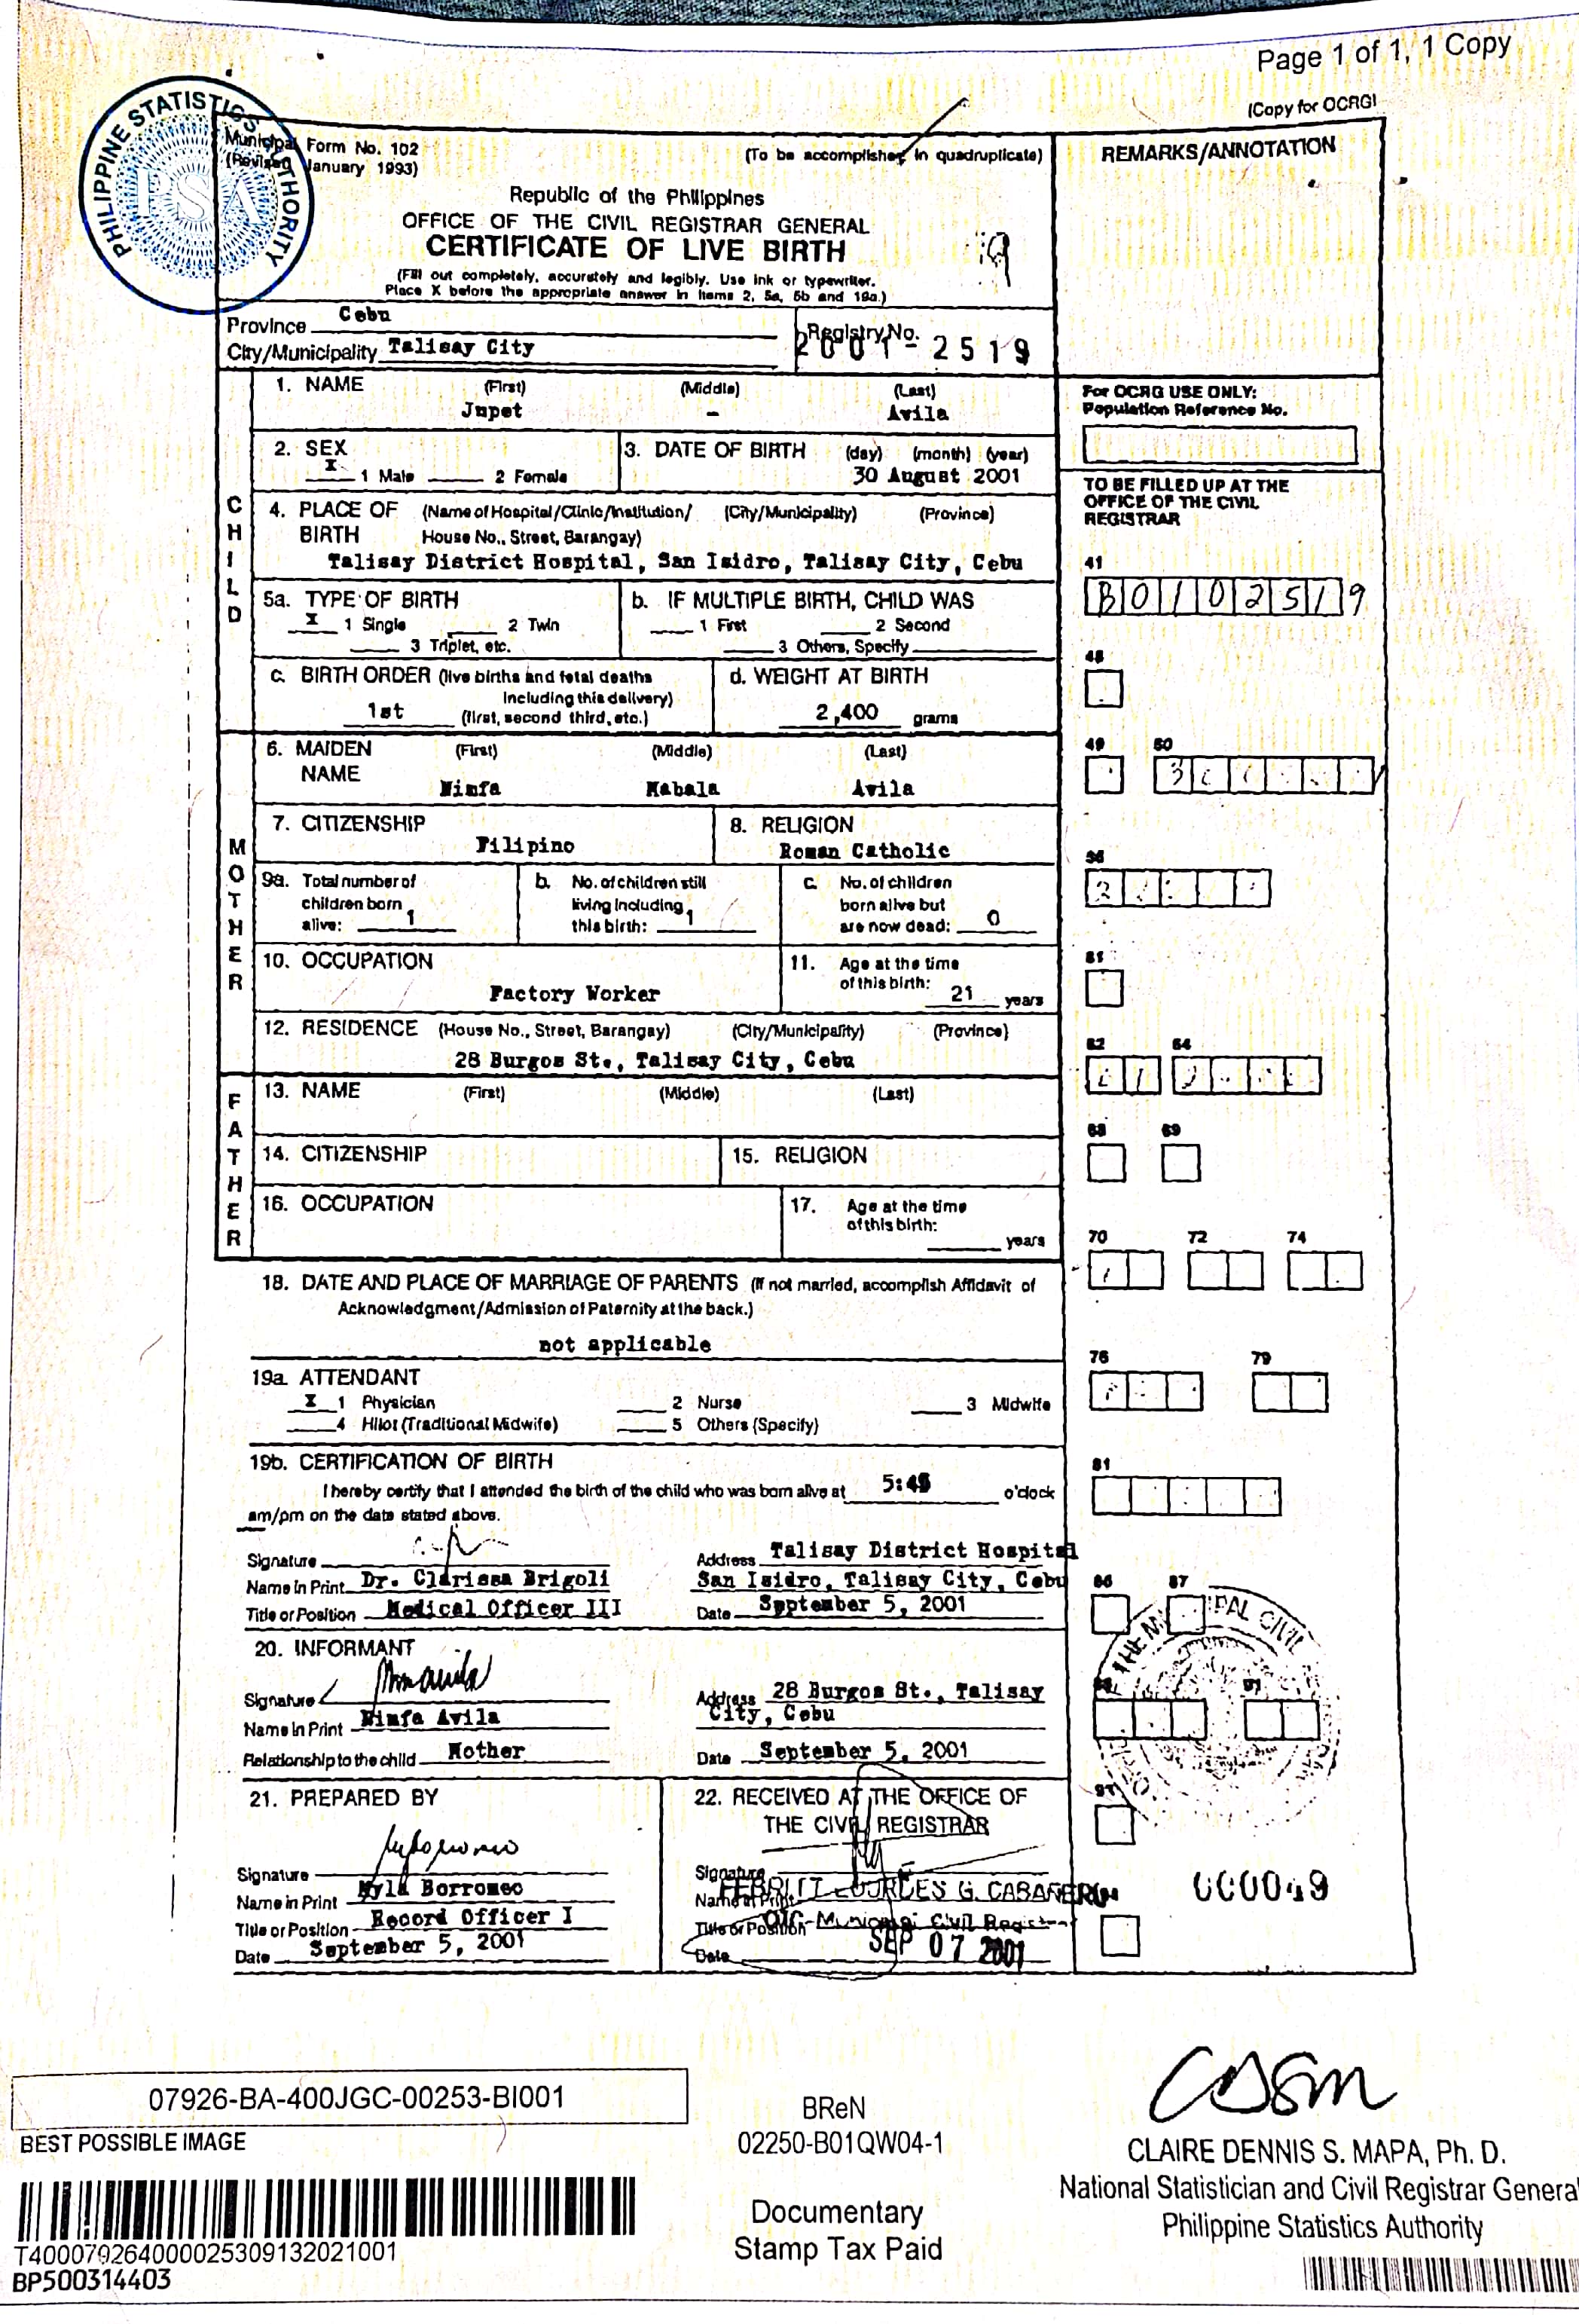 Page 1 of 1, 1 Copy
(Copy for OCRG)
PHILIPPINE STATISTICS AUTHORITY
PSA
Municipal Form No. 102
(Revised January 1993)
(To be accomplished in quadruplicate)
REMARKS/ANNOTATION
Republic of the Philippines
OFFICE OF THE CIVIL REGISTRAR GENERAL
CERTIFICATE OF LIVE BIRTH
(Fill out completely, accurately and legibly. Use ink or typewriter.
Place X before the appropriate answer in items 2, 5a, 5b and 19a.)
Province Cebu
City/Municipality Talisay City
Registry No.
2001-2519
CHILD
1. NAME (First) (Middle) (Last)
Jupet - Avila
For OCRG USE ONLY:
Population Reference No.
2. SEX
X 1 Male 2 Female
3. DATE OF BIRTH (day) (month) (year)
30 August 2001
TO BE FILLED UP AT THE
OFFICE OF THE CIVIL
REGISTRAR
4. PLACE OF BIRTH (Name of Hospital/Clinic/Institution/ (City/Municipality) (Province)
House No., Street, Barangay)
Talisay District Hospital, San Isidro, Talisay City, Cebu
41
B0102519
5a. TYPE OF BIRTH
X 1 Single 2 Twin
3 Triplet, etc.
b. IF MULTIPLE BIRTH, CHILD WAS
1 First 2 Second
3 Others, Specify
48
c. BIRTH ORDER (live births and fetal deaths
including this delivery)
1st (first, second third, etc.)
d. WEIGHT AT BIRTH
2,400 grams
MOTHER
6. MAIDEN NAME (First) (Middle) (Last)
Ninfa Mabala Avila
49 50
7. CITIZENSHIP
Filipino
8. RELIGION
Roman Catholic
56
9a. Total number of
children born
alive: 1
b. No. of children still
living including
this birth: 1
c. No. of children
born alive but
are now dead: 0
10. OCCUPATION
Factory Worker
11. Age at the time
of this birth: 21 years
61
12. RESIDENCE (House No., Street, Barangay) (City/Municipality) (Province)
28 Burgos St., Talisay City, Cebu
62 64
FATHER
13. NAME (First) (Middle) (Last)
14. CITIZENSHIP
15. RELIGION
68 69
16. OCCUPATION
17. Age at the time
of this birth:
years
70 72 74
18. DATE AND PLACE OF MARRIAGE OF PARENTS (If not married, accomplish Affidavit of
Acknowledgment/Admission of Paternity at the back.)
not applicable
76 79
19a. ATTENDANT
X 1 Physician 2 Nurse 3 Midwife
4 Hilot (Traditional Midwife) 5 Others (Specify)
19b. CERTIFICATION OF BIRTH
I hereby certify that I attended the birth of the child who was born alive at 5:45 o'clock
am/pm on the date stated above.
81
Signature
Name in Print Dr. Clarissa Brigoli
Title or Position Medical Officer III
Address Talisay District Hospital
San Isidro, Talisay City, Cebu
Date September 5, 2001
86 87
20. INFORMANT
Signature
Name in Print Ninfa Avila
Relationship to the child Mother
Address 28 Burgos St., Talisay
City, Cebu
Date September 5, 2001
91
21. PREPARED BY
Signature
Name in Print Myla Borromeo
Title or Position Record Officer I
Date September 5, 2001
22. RECEIVED AT THE OFFICE OF
THE CIVIL REGISTRAR
Signature
Name in Print LOURDES G. CABAÑERO
Title or Position OIC-Municipal Civil Registrar
Date SEP 07 2001
000049
07926-BA-400JGC-00253-BI001
BEST POSSIBLE IMAGE
T400079264000025309132021001
BP500314403
BReN
02250-B01QW04-1
Documentary
Stamp Tax Paid
CLAIRE DENNIS S. MAPA, Ph. D.
National Statistician and Civil Registrar General
Philippine Statistics Authority